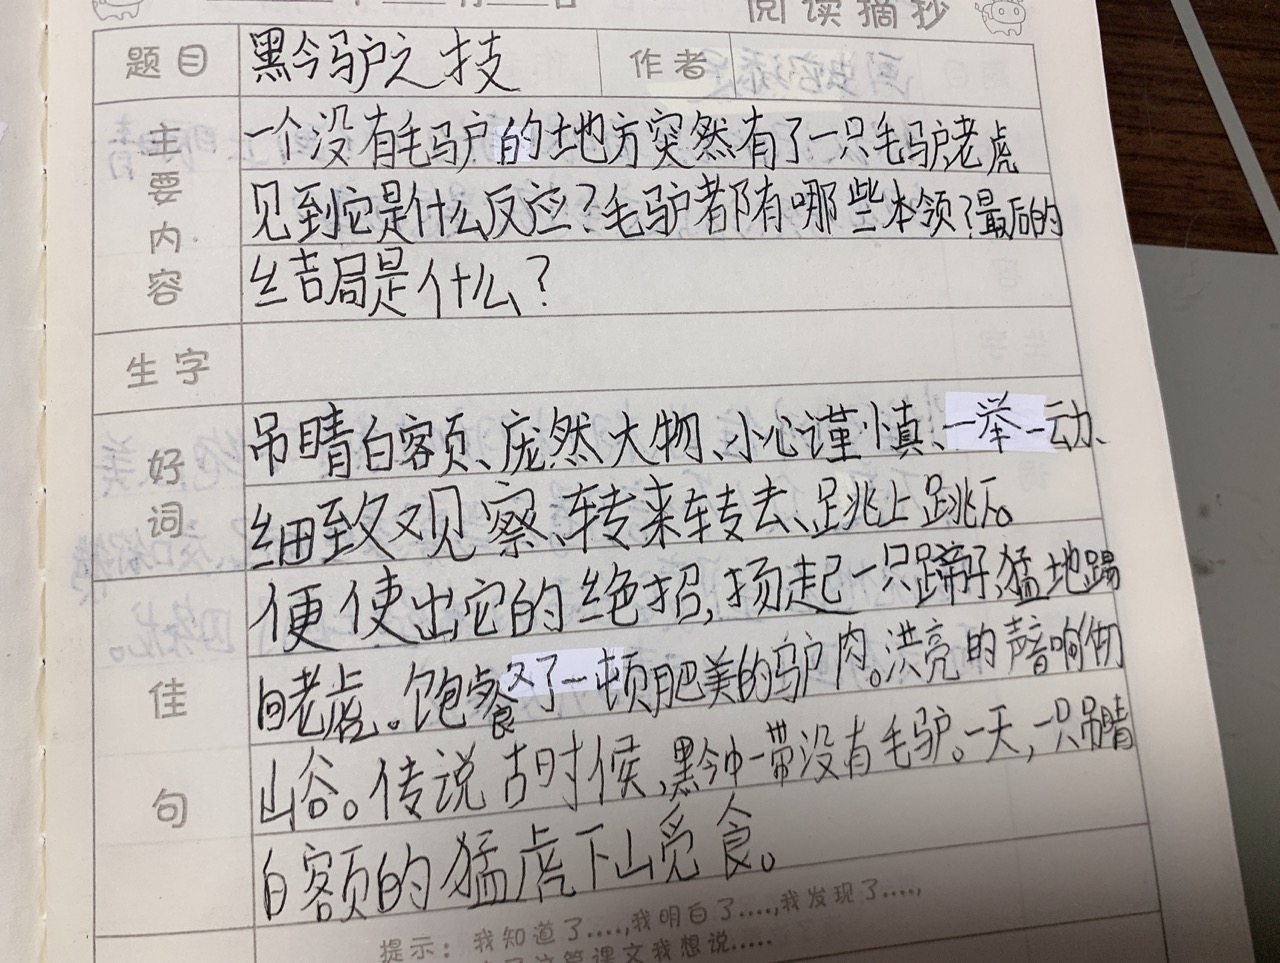 阅读摘抄
题目 黔驴之技 作者
主要内容
一个没有毛驴的地方突然有了一只毛驴,老虎
见到它是什么反应?毛驴都有哪些本领?最后的
结局是什么?
生字
好词
吊睛白额页、庞然大物、小心谨慎、一举一动、
细致观察、转来转去、跳上跳下。
佳句
便使出它的绝招,扬起一只蹄子,猛地踢
向老虎。饱餐了一顿肥美的驴肉。洪亮的声音响彻
山谷。传说古时候,黔中一带没有毛驴。一天,一只吊睛
白额的猛虎下山觅食。
提示:我知道了....,我明白了....,我发现了....,
我想说.....